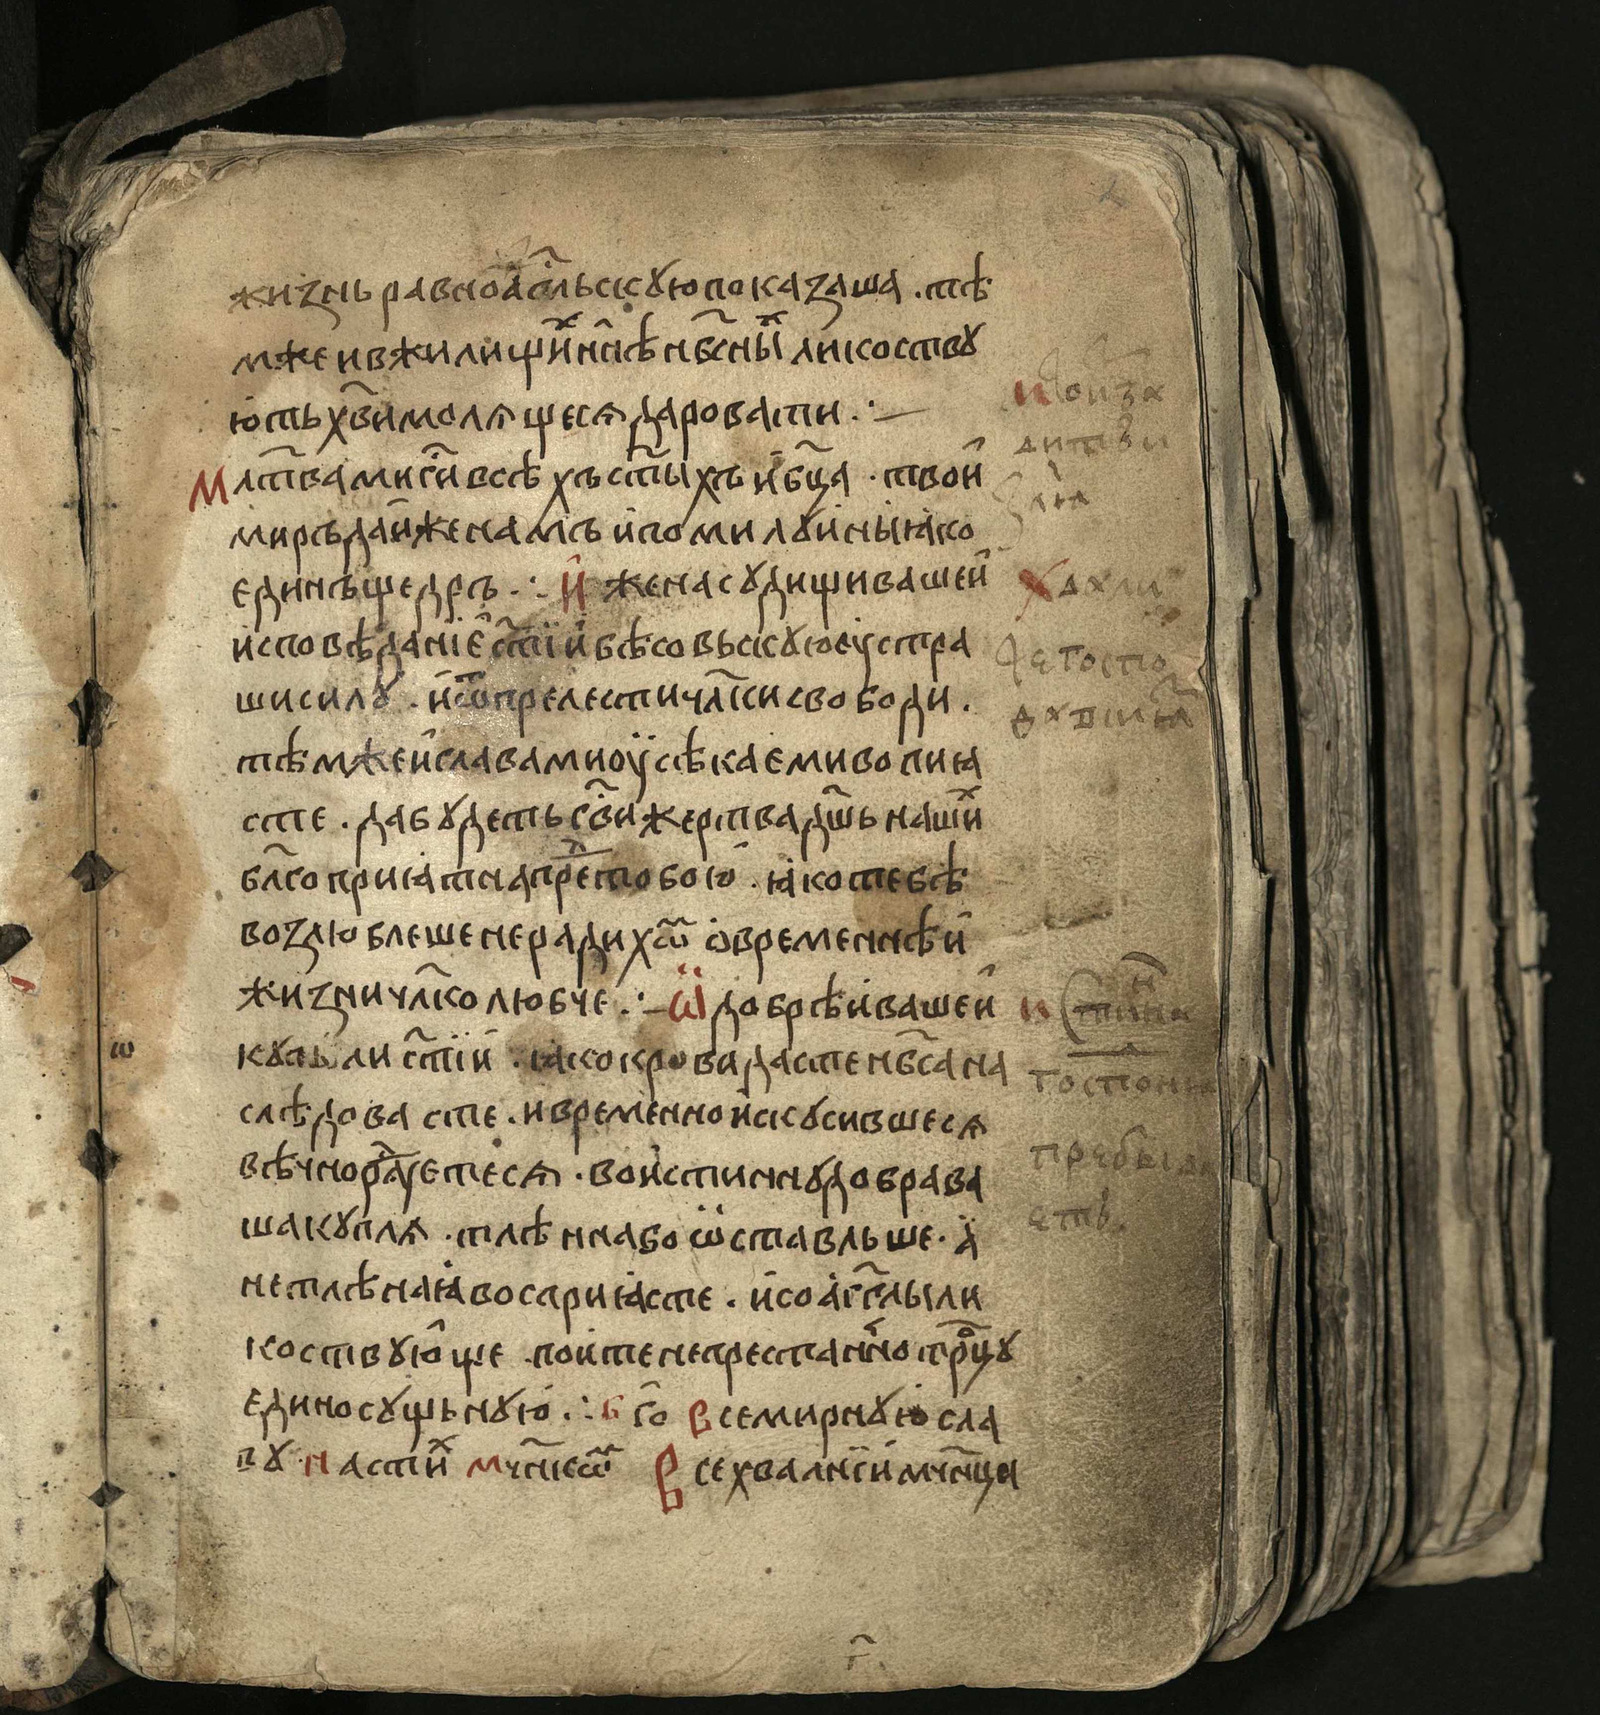 жиꙁнь равноа҆гг҃льскꙋю показаша . тѣ
мже и в жилищиⷯ нн҃ѣ нбⷭ҇ныⷯ ликоствꙋ
ють хв҃и молѧщесѧ даровати . ·:—
Млт҃вами гй҃ всѣхъ ст҃ыхъ и бц҃а · твои
миръ даи же намъ и помилꙋи ны ꙗко
единъ щедръ . ·:· Иже на сꙋдищи вашеи
исповѣданїе ст҃їи бѣсовьскꙋю ѹстра
ши силꙋ . и ѿ прелести чл҃ки свободи .
тѣмже и славами ѹсѣкаеми вопиꙗ
сте . да бꙋдеть гв҃и жертва дш҃ь нашиⷯ
бл҃гоприꙗтна преⷣ тобою . ꙗко тебѣ
воꙁлюблеше не ради хѿ ѡ временнѣи
жиꙁни чл҃колюбче . ·:— Ѡ добрѣи вашеи
кꙋпли ст҃їи . ꙗко крови дасте нбⷭ҇а на
слѣдовасте . и временно искꙋсившесѧ
вѣчно раⷣуетесѧ . воистиннꙋ добра ва
ша кꙋплѧ . тлѣннаꙗ бо ѡставльше . а
нетлѣнаꙗ восприꙗсте . и со а҆гг҃лы ли
коствꙋюще . поите непрестанно трⷪ҇цꙋ
единосꙋщьнꙋю . ·:· б го Всемирнꙋю сла
вꙋ на стиⷯ мчн҃іеѿ Всехвалнїи мчн҃ци
пребыва
еть.
ѡ
г҃